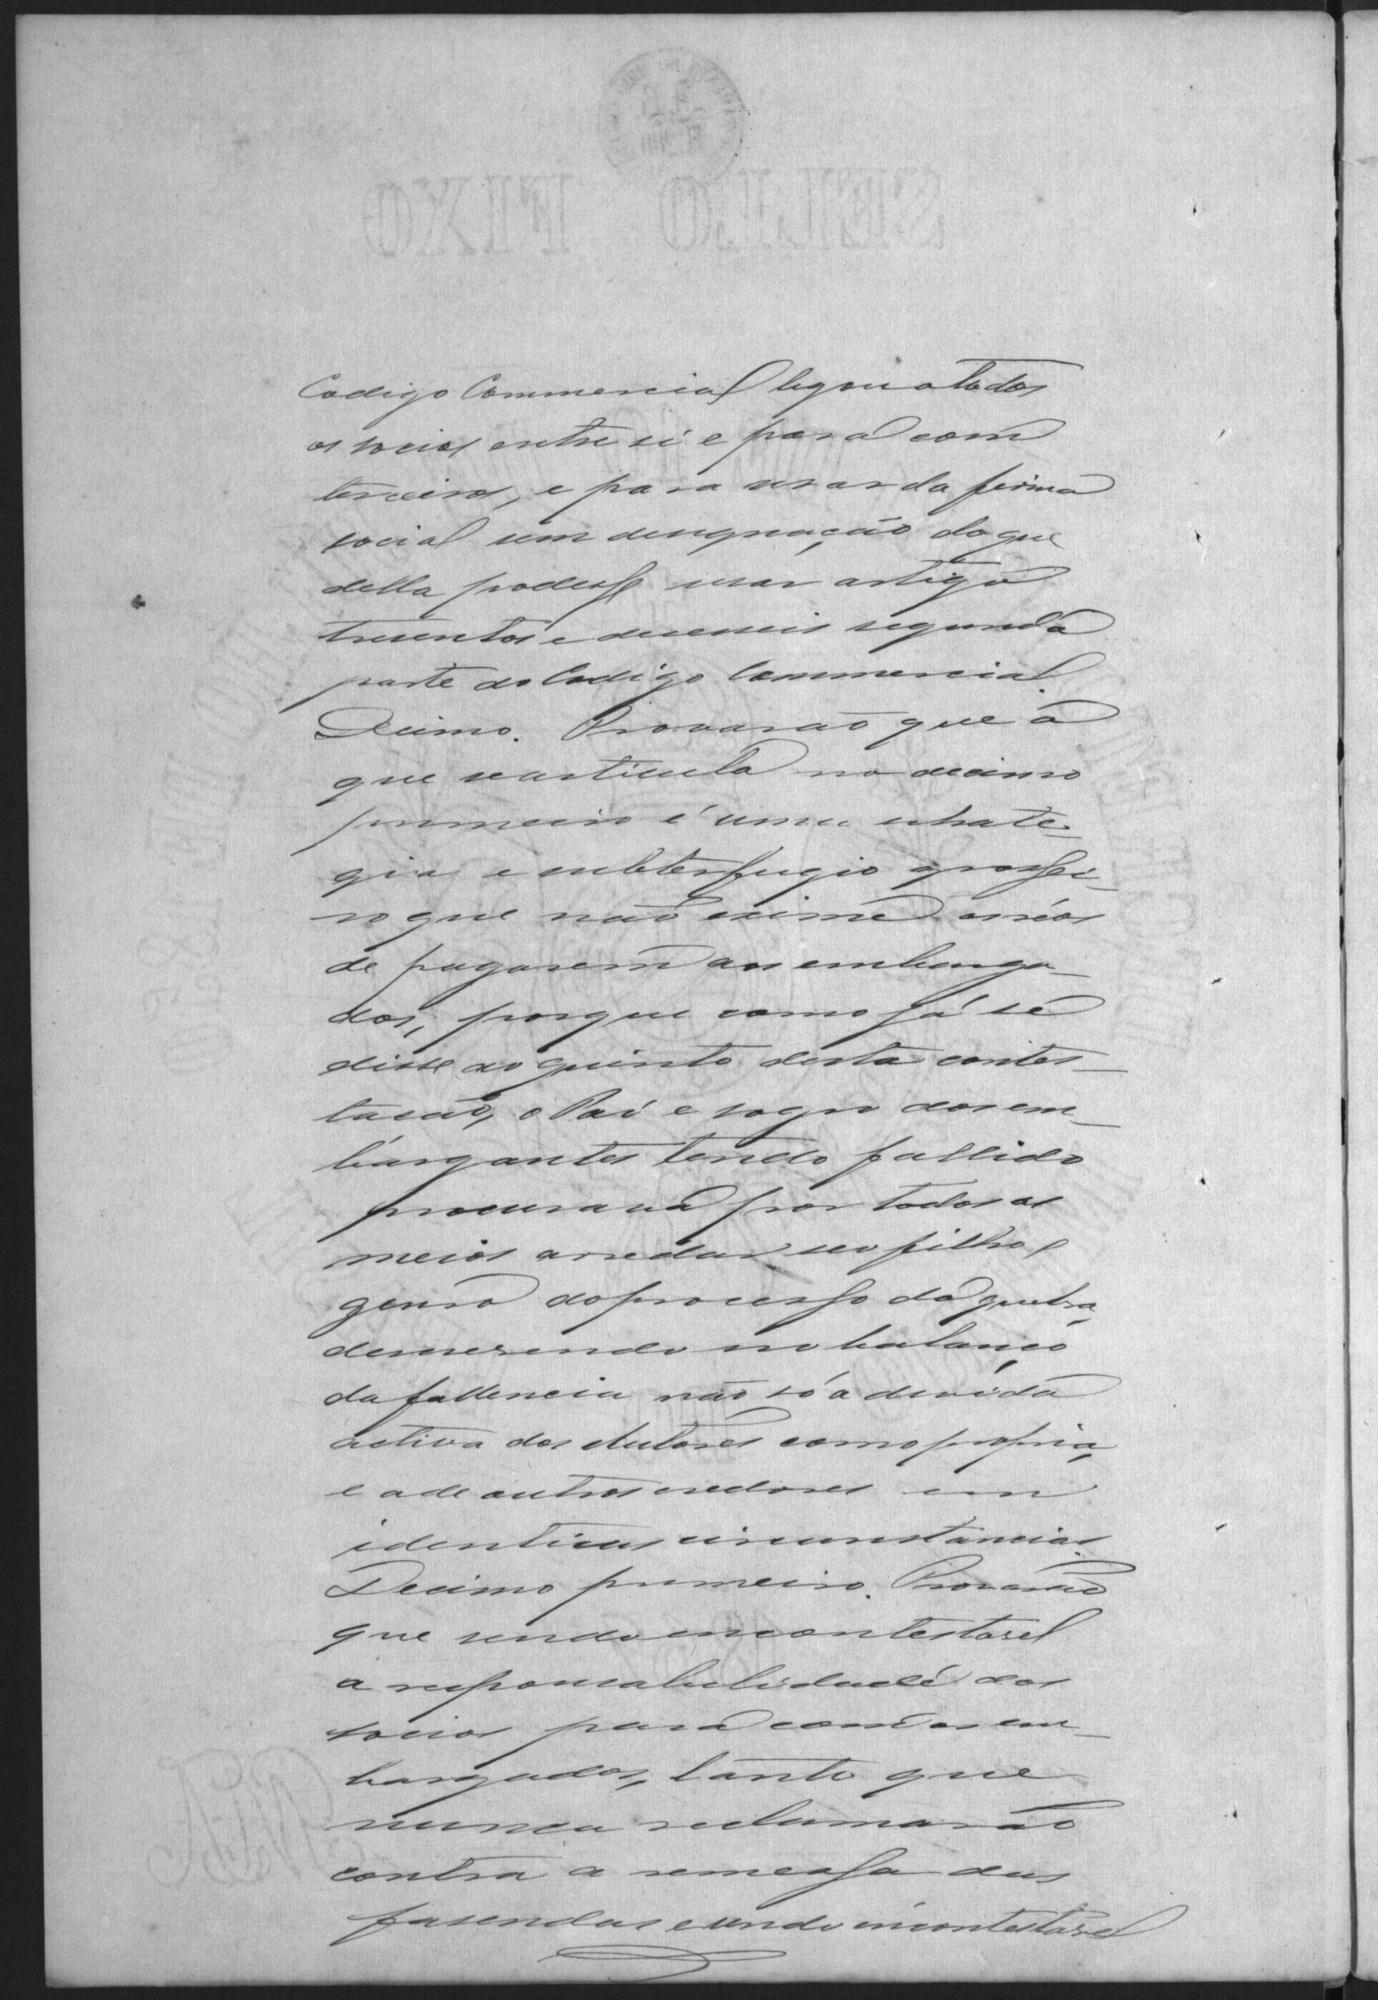 SELLO FIXO
Codigo Commercial ligou a todos
os socios entre si e para com
terceiros, e para usar da firma
social sem designação do que
della podesse usar artigo
tresentos e deseseis segunda
parte do Codigo Commercial.
Decimo. Provarão que o
que se articula no decimo
primeiro é uma estrate-
gia e subterfugio grossei-
ro que não exime os réos
de pagarem aos embarga-
dos, porque como já se
disse ao quinto desta contes-
tação, o Pai e sogro dos em-
bargantes tendo fallido
procurava por todos os
meios arredar seo filho e
genro do processo da quebra,
descrevendo no balanço
da fallencia não só a devida
activa dos Autores como propria,
e a de outros credores em
identicas circunstancias.
Decimo primeiro. Provarão
que sendo incontestavel
a responsabilidade dos
socios para com os em-
bargados, tanto que
nunca reclamarão
contra a remessa das
fasendas e sendo incontestavel